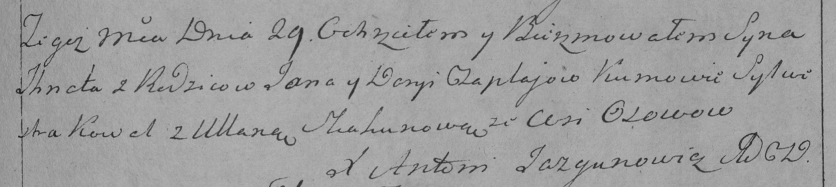 Tegoż mca Dnia 29. Ochrzciłem y Bierzmowałem Syna
Ihnata z Rodzicow Jana y Daryi Czaplajow Kumowie Sylwe
stra Kowel z Ullaną Mahunową ze Wsi Osowow
X Antoni Jazgunowicz